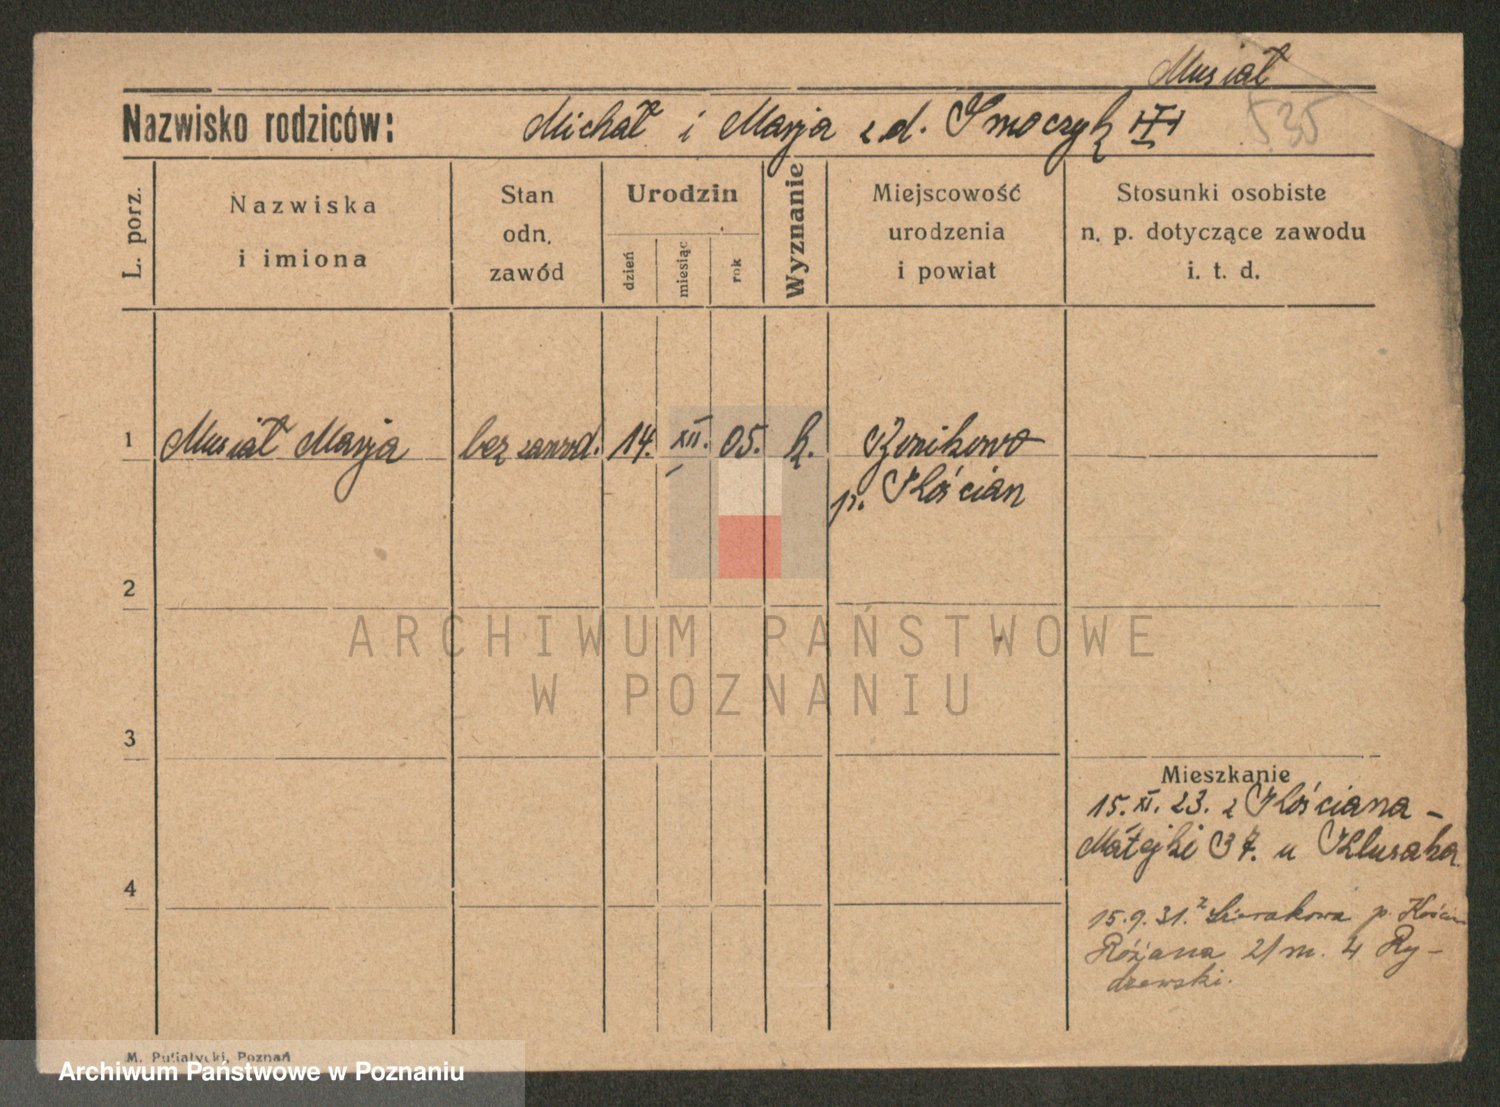 Musiał
Nazwisko rodziców: Michał i Marja z d. Smoczyk III
535
L. porz.
Nazwiska
i imiona
Stan
odn.
zawód
Urodzin
dzień
miesiąc
rok
Wyznanie
Miejscowość
urodzenia
i powiat
Stosunki osobiste
n. p. dotyczące zawodu
i. t. d.
1 Musiał Marja bez zawod. 14. XII. 05. k.
p. Kościan
2
ARCHIWUM PAŃSTWOWE
W POZNANIU
3
Mieszkanie
15. XI. 23. z Kościana –
Matejki 37. u Klusaka
4
15.9.31. z Sierakowa p. Kościan
Różana 21 m. 4 Ry-
dzewski.
M. Putiatycki, Poznań
Archiwum Państwowe w Poznaniu